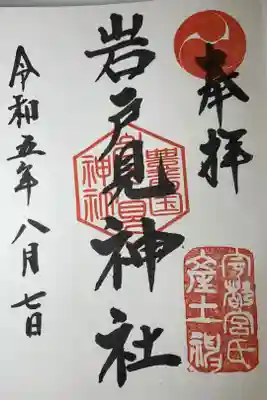 奉拝
岩戸見神社
豊之国
岩戸見
神社
宇都宮氏
産土神
令和五年八月七日